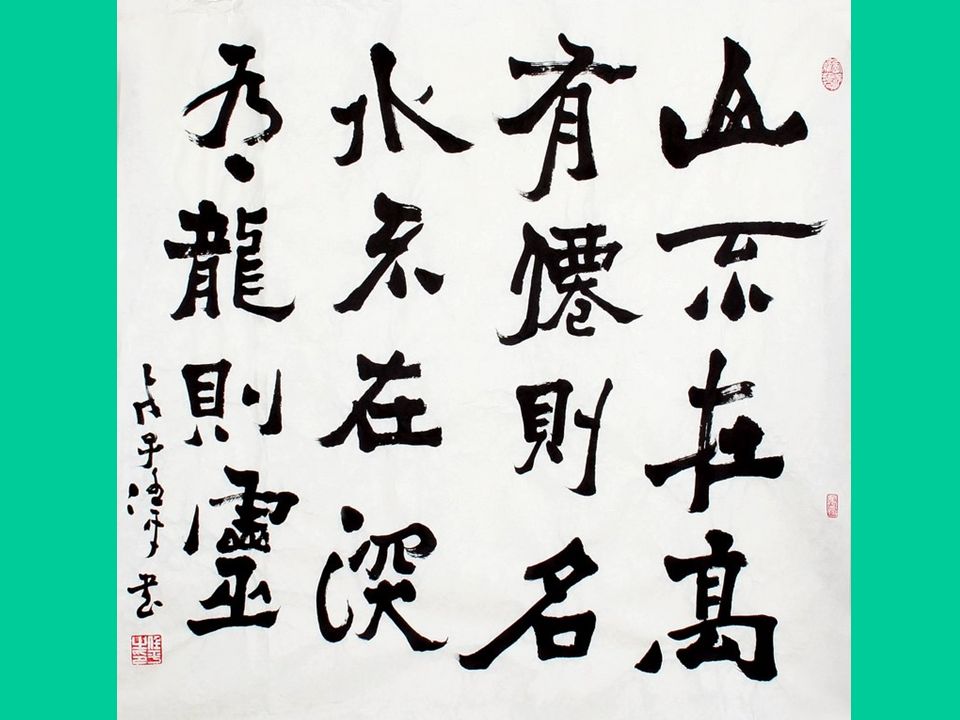 山不在高
有僊則名
水不在深
有龍則靈
戊子 書